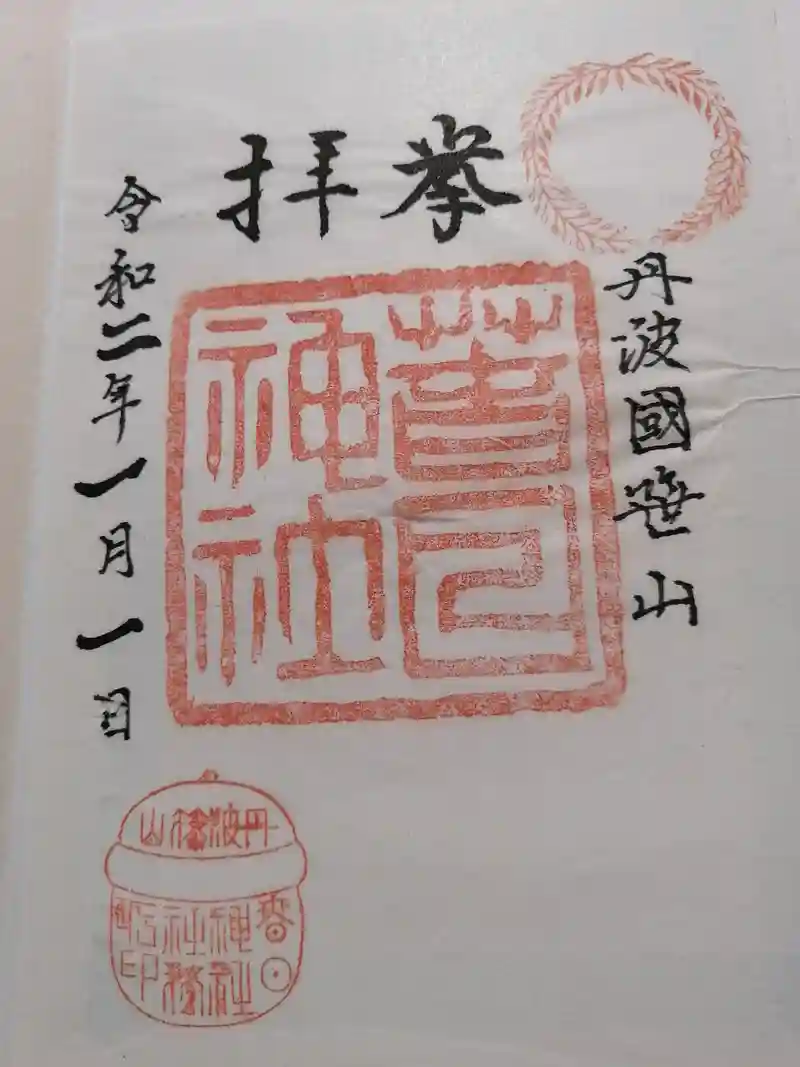 丹波國笹山
奉拝
春日
神社
令和二年一月一日
丹波篠山
春日
神社
社務
所印